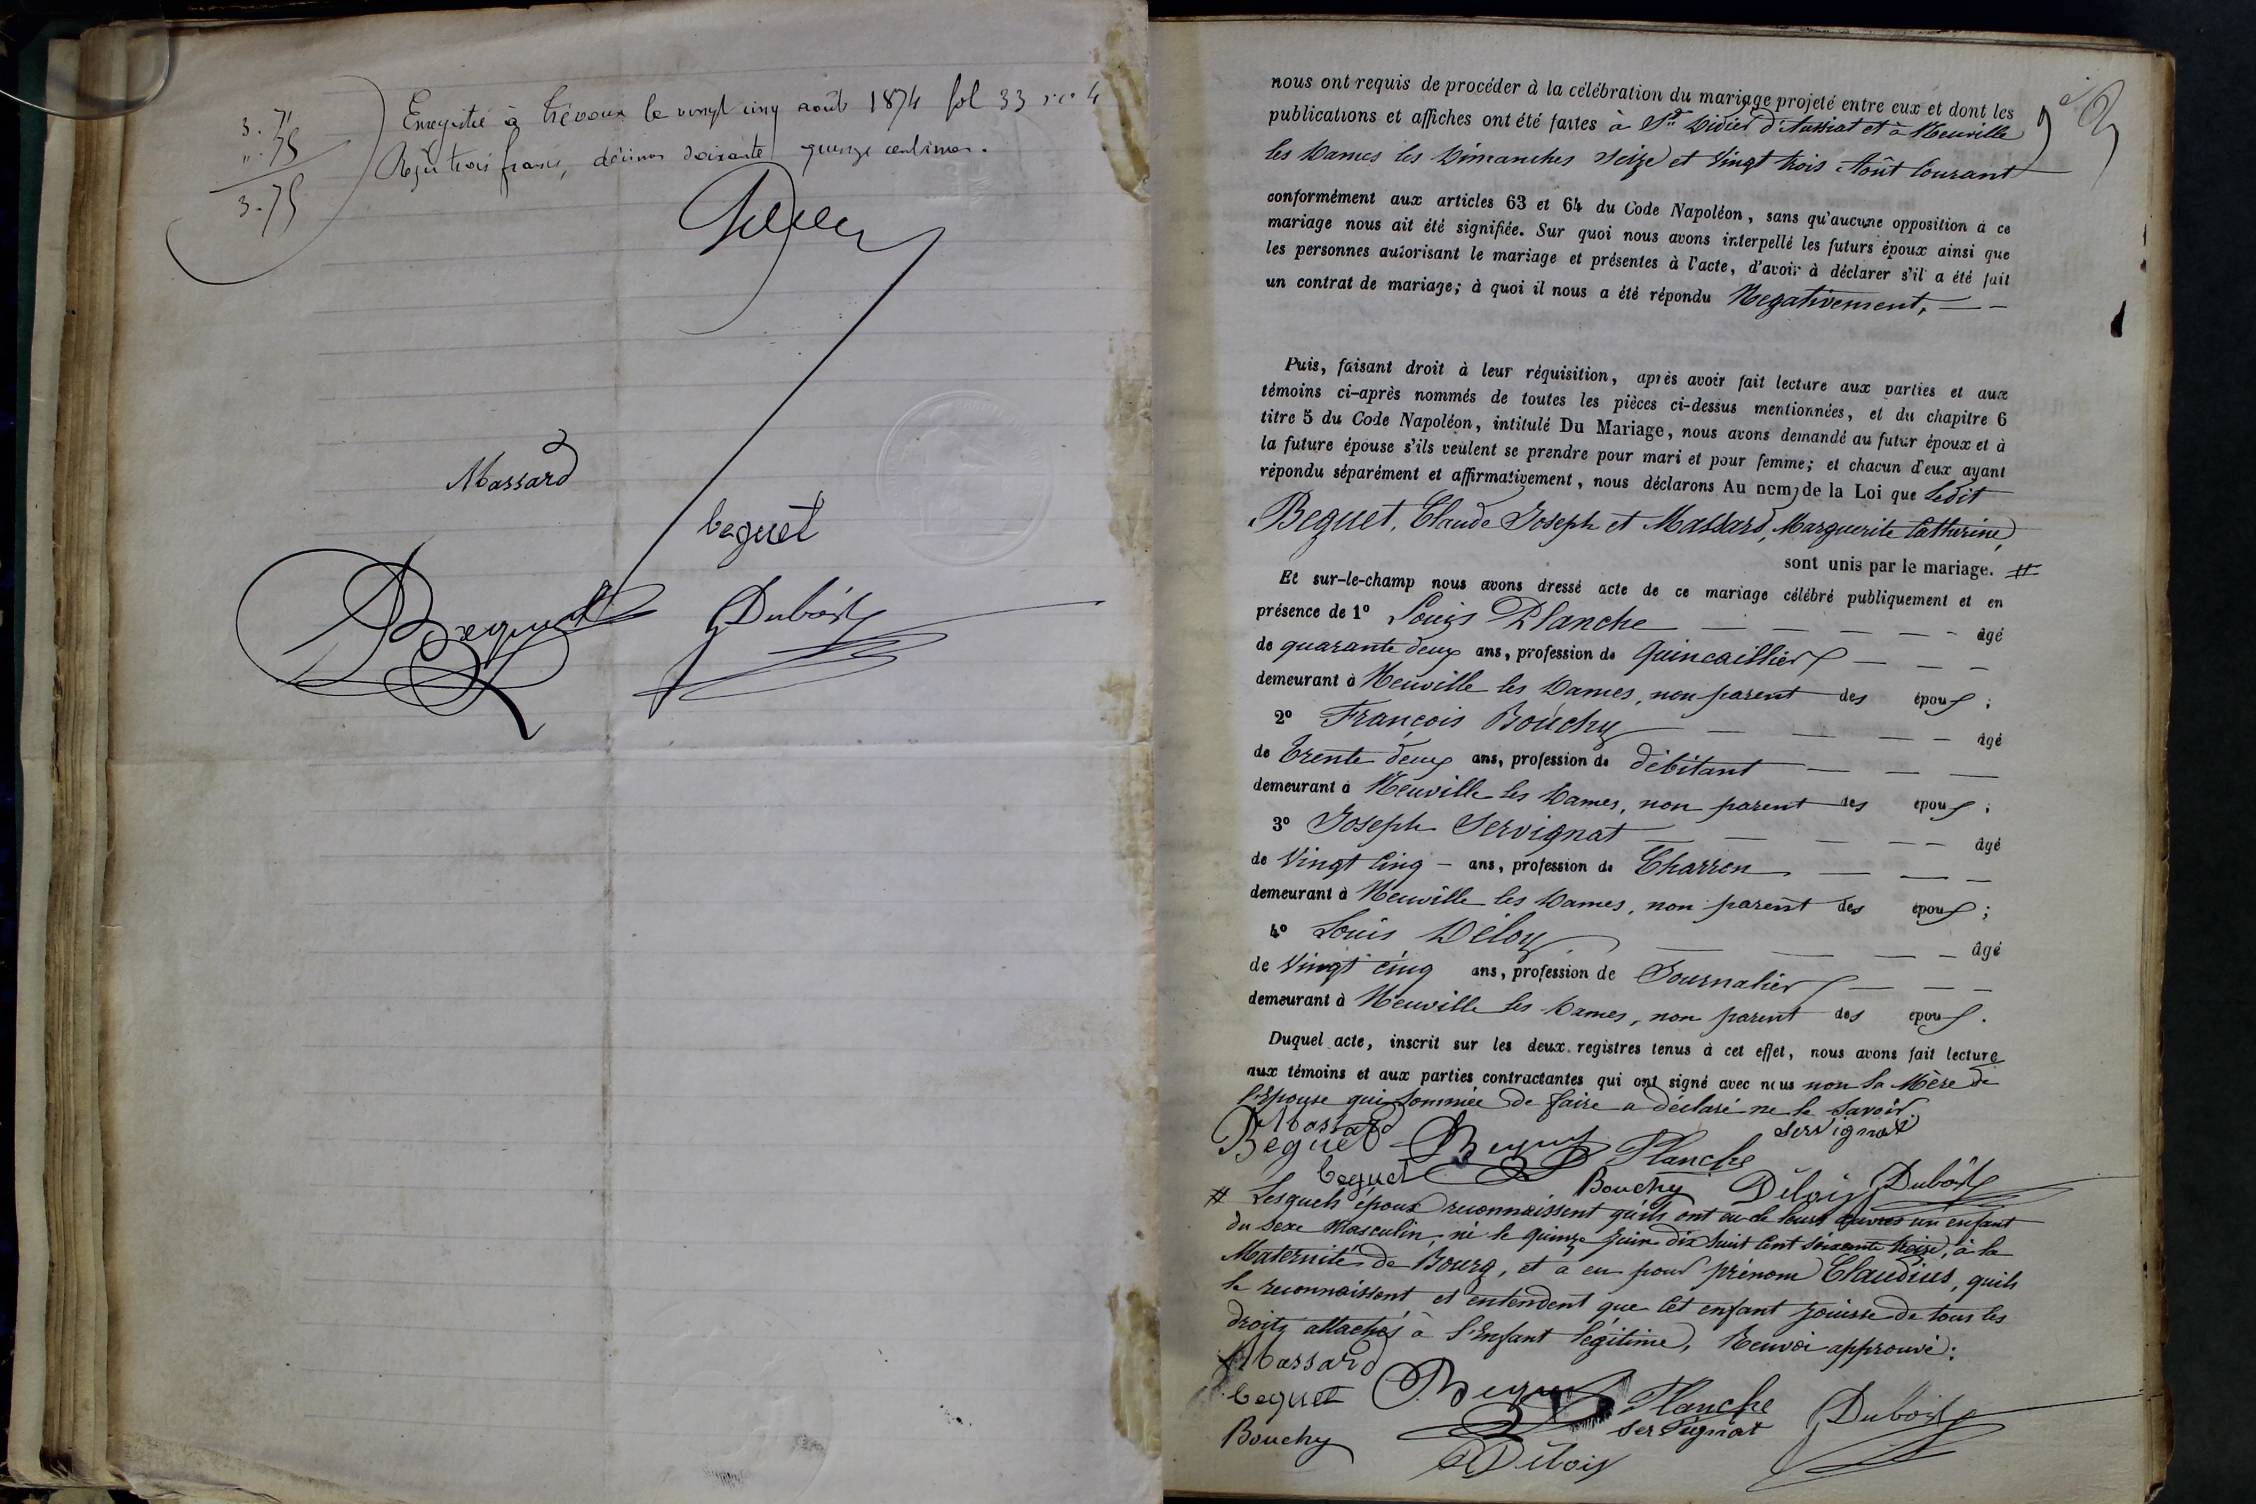 3. "
". 75
3.75
Enregistré à Trévoux le vingt cinq août 1874 fol 33 v° c 4
Reçu trois francs, décimes soixante quinze centimes.
Massard
beguet
Beguet Dubost
nous ont requis de procéder à la célébration du mariage projeté entre eux et dont les
publications et affiches ont été faites à St Didier d'Aussiat et à Neuville
les Dames les Dimanches Seize et Vingt trois Août Courant
conformément aux articles 63 et 64 du Code Napoléon, sans qu'aucune opposition à ce
mariage nous ait été signifiée. Sur quoi nous avons interpellé les futurs époux ainsi que
les personnes autorisant le mariage et présentes à l'acte, d'avoir à déclarer s'il a été fait
un contrat de mariage; à quoi il nous a été répondu Negativement,
Puis, faisant droit à leur réquisition, après avoir fait lecture aux parties et aux
témoins ci-après nommés de toutes les pièces ci-dessus mentionnées, et du chapitre 6
titre 5 du Code Napoléon, intitulé Du Mariage, nous avons demandé au futur époux et à
la future épouse s'ils veulent se prendre pour mari et pour femme; et chacun d'eux ayant
répondu séparément et affirmativement, nous déclarons Au nom de la Loi que Ledit
Beguet, Claude Joseph et Massard, Marguerite Catherine,
sont unis par le mariage. #
Et sur-le-champ nous avons dressé acte de ce mariage célébré publiquement et en
présence de 1° Louis Planche âgé
de quarante deux ans, profession de Quincaillier
demeurant à Neuville les Dames, non parent des époux;
2° François Bouchy âgé
de trente deux ans, profession de débitant
demeurant à Neuville les Dames, non parent des époux;
3° Joseph Servignat âgé
de Vingt Cinq - ans, profession de Charron
demeurant à Neuville les Dames, non parent des époux;
4° Louis Déloy âgé
de Vingt cinq ans, profession de Journalier
demeurant à Neuville les Dames, non parent des époux.
Duquel acte, inscrit sur les deux registres tenus à cet effet, nous avons fait lecture
aux témoins et aux parties contractantes qui ont signé avec nous non la Mère de
l'Epouse qui sommée de faire a déclaré ne le savoir.
Massard Servignat
Beguet Beguet Planche
beguet Bouchy Délois Dubost
# Lesquels époux reconnaissent qu'ils ont eu de leurs œuvres un enfant
du sexe Masculin, né le quinze Juin dix huit Cent soixante treize, à la
Maternité de Bourg, et a eu pour prénom Claudius, quils
le reconnaissent et entendent que Cet enfant jouisse de tous les
droits attachés à l'Enfant légitime, Renvoi approuvé:
Massard
beguet Beguet Planche
Bouchy Servignat Dubost
Délois